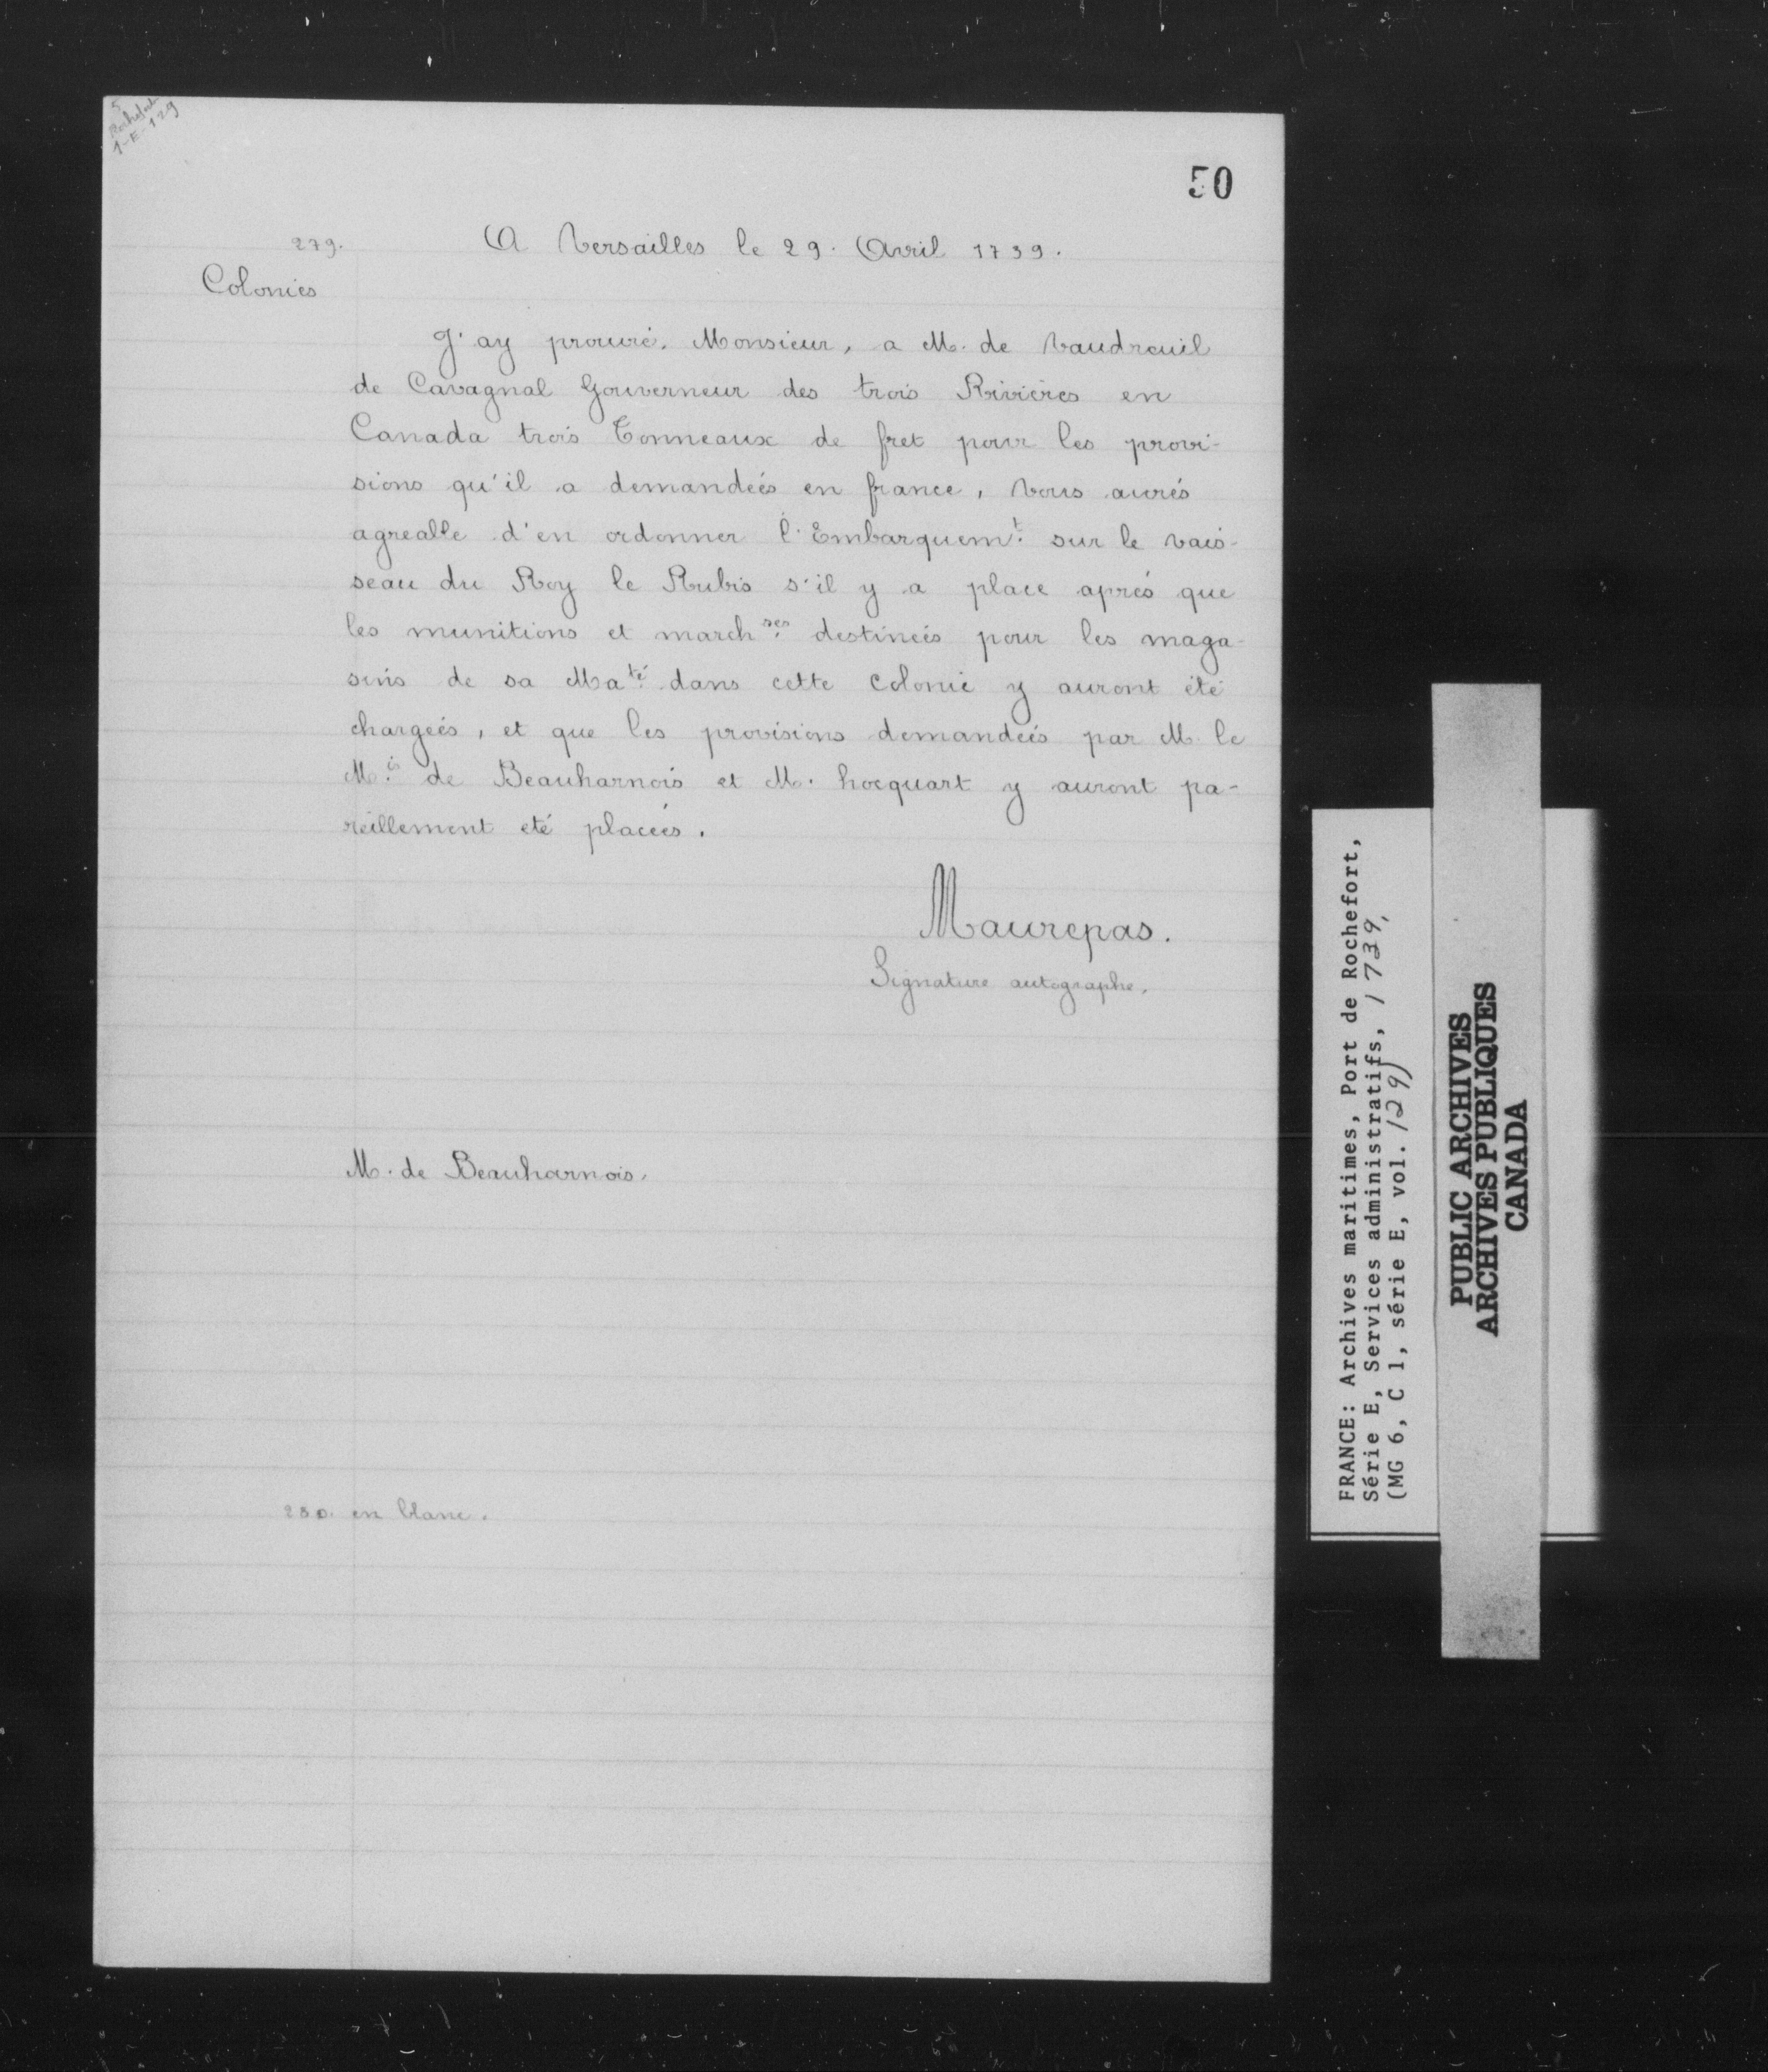 5
Rochefort
1-E-129
50
279.
A Versailles le 29. Avril 1739.
Colonies
J'ay prouvé, Monsieur, a M. de Vaudreuil
de Cavagnal Gouverneur des trois Rivières en
Canada trois Tonneaux de fret pour les provi-
sions qu'il a demandées en france, Vous aurés
agreable d'en ordonner l'Embarquem.t sur le vais-
seau du Roy le Rubis s'il y a place aprés que
les munitions et march.ses destinées pour les maga-
sins de sa Ma.té dans cette colonie y auront été
chargeés, et que les provisions demandeés par M. le
M.is de Beauharnois et M. hocquart y auront pa-
reillement eté placeés.
Maurepas.
Signature autographe.
M. de Beauharnois.
280. en blanc.
FRANCE: Archives maritimes, Port de Rochefort,
Série E, Services administratifs, 1739,
(MG 6, C 1, série E, vol. 129)
PUBLIC ARCHIVES
ARCHIVES PUBLIQUES
CANADA